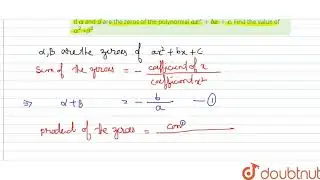 If α and β are the zeros of the polynomial ax² + bx + c. Find the value of
α, β are the zeroes of ax² + bx + c
Sum of the zeroes = - coefficient of x
coefficient x²
⇒ α + β = - b/a — ①
product of the zeroes = con
doubtnut